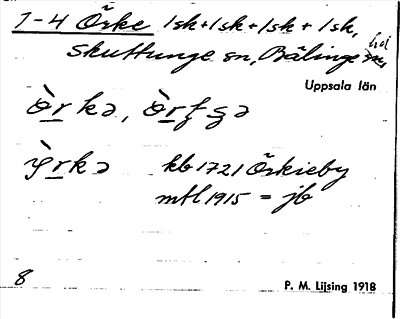 1-4 Örke 1sk+1sk+1sk+1sk,
Skuttunge sn, Bälinge hd
Uppsala län
kb 1721 Örkieby
mtl 1915 = jb
8 P. M. Lijsing 1918